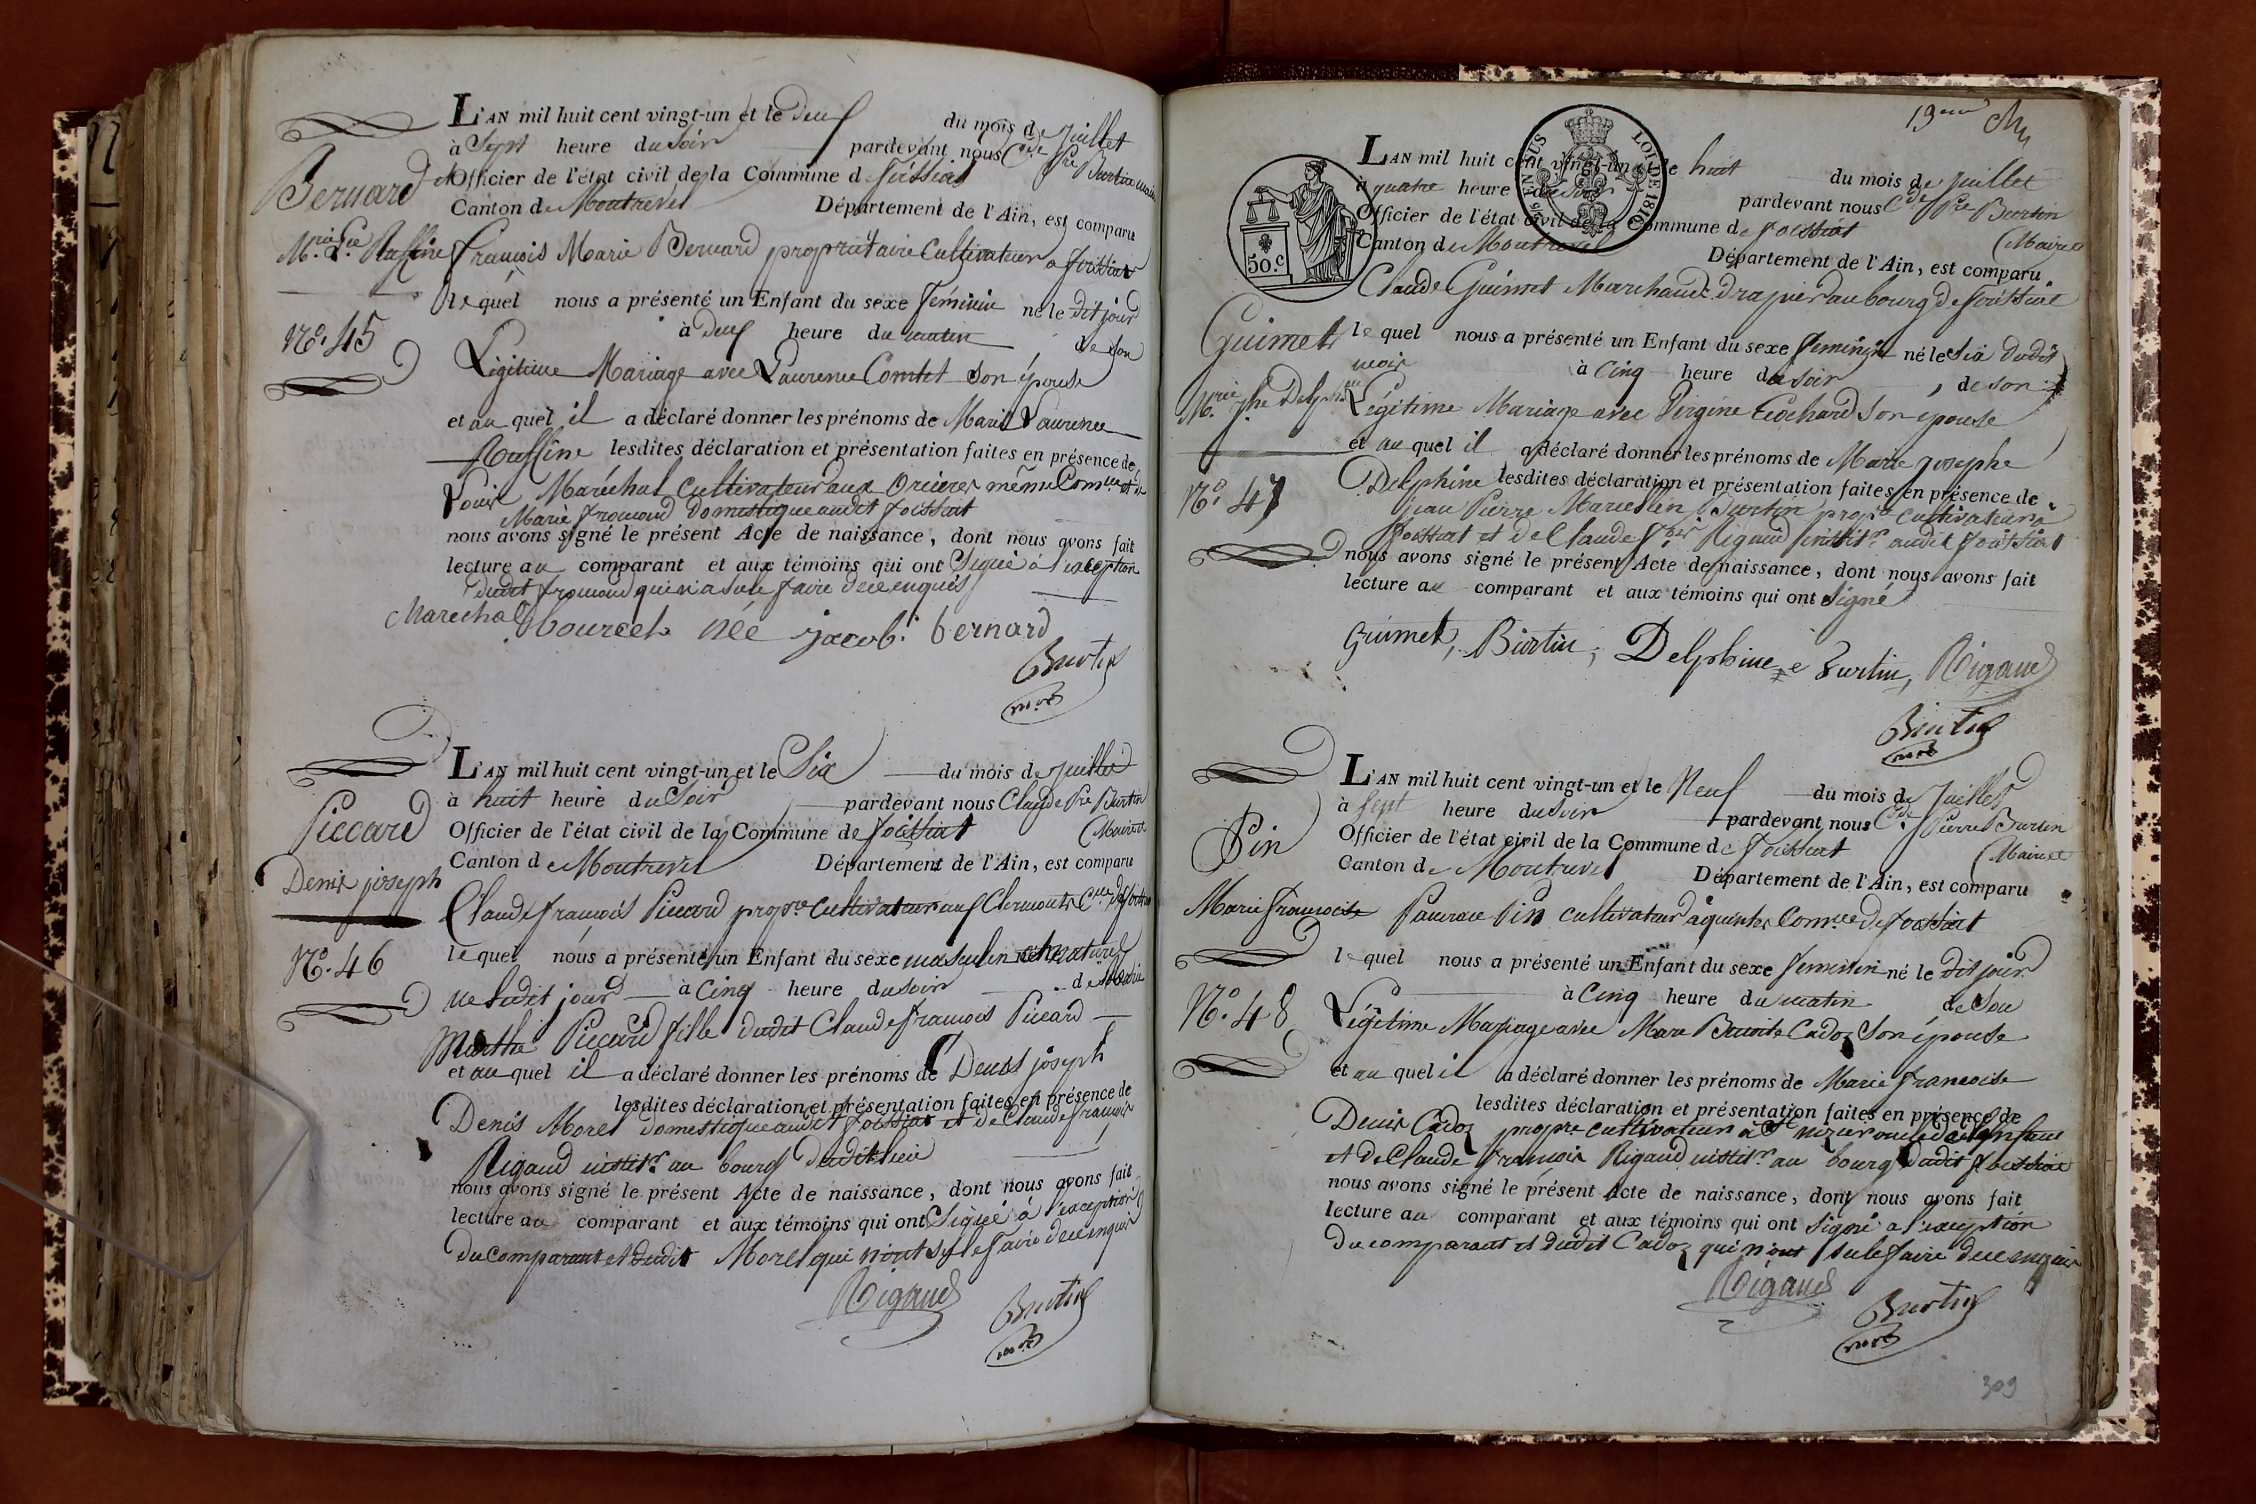 L'AN mil huit cent vingt-un et le deux du mois de Juillet
à Sept heure du Soir pardevant nous Cde Pre Burtin maire
Bernard
et Officier de l'état civil de la Commune de foissiat
Canton de Montrevel Département de l'Ain, est comparu
Mrie Lce Ruffine
françois Marie Bernard propriétaire cultivateur a foissiat
lequel nous a présenté un Enfant du sexe féminin né le dit jour
No. 45
à deux heure du matin de son
Légitime Mariage avec Laurence Comtet son épouse
et au quel il a déclaré donner les prénoms de Marie Laurence
Ruffine lesdites déclaration et présentation faites en présence de
Louis Maréchal cultivateur aux Orcières même Comune et de
Marie fromond domestique audit foissiat
nous avons signé le présent Acte de naissance, dont nous avons fait
lecture au comparant et aux témoins qui ont Signé à l'exception
dudit fromond qui n'a su le faire de ce enquis
Marechal bourcet née jacob. bernard
Burtin
mre
L'AN mil huit cent vingt-un et le Six du mois de juillet
à huit heure du Soir pardevant nous Claude Pre Burtin
Piccard
Officier de l'état civil de la Commune de foissiat (Maire et
Canton de Montrevel Département de l'Ain, est comparu
Denis joseph
Claude françois Piccard propre cultivateur aux Clermonts Cne de foissiat
No. 46
lequel nous a présenté un Enfant du sexe masculin naturel
né ledit jour à Cinq heure du soir de Marie
Marthe Piccard fille dudit Claude françois Piccard
et au quel il a déclaré donner les prénoms de Denis joseph
lesdites déclaration et présentation faites en présence de
Denis Morel domestique audit foissiat et de Claude françois
Rigaud instit.r au bourg dudit lieu
nous avons signé le présent Acte de naissance, dont nous avons fait
lecture au comparant et aux témoins qui ont Signé à l'exception
Du comparant et dudit Morel qui n'ont su le faire de ce enquis
Rigaud Burtin
mre
19eme
TIMBRE LOI DE 1816
50.c
L'AN mil huit cent vingt-un et le huit du mois de juillet
à quatre heure du soir pardevant nous Cde Pre Burtin
Officier de l'état civil de la Commune de foissiat (Maire et
Canton de Montrevel Département de l'Ain, est comparu
Claude Guimet Marchand drapier au bourg de foissiat
Guimet
lequel nous a présenté un Enfant du sexe féminin né le Six dudit
mois à Cinq heure du soir, de son
Mrie jphe Delphine
Légitime Mariage avec Virgine Cochard son épouse
et au quel il a déclaré donner les prénoms de Marie josephe
No. 47
Delphine lesdites déclaration et présentation faites en présence de
jean Pierre Marcellin Burtin propre cultivateur à
foissiat et de Claude fçois Rigaud instit.r audit foissiat
nous avons signé le présent Acte de naissance, dont nous avons fait
lecture au comparant et aux témoins qui ont signé
Guimet, Burtin, Delphine Burtin, Rigaud
Burtin
mre
L'AN mil huit cent vingt-un et le Neuf du mois de Juillet
à sept heure du soir pardevant nous Cde Pierre Burtin
Pin
Officier de l'état civil de la Commune de foissiat (Maire et
Canton de Montrevel Département de l'Ain, est comparu
Marie françoise
Pin cultivateur Comne de foissiat
lequel nous a présenté un Enfant du sexe féminin né le dit jour
No. 48
à Cinq heure du matin de Son
Légitime Mariage avec Marie Benoite Cadoz Son épouse
et au quel il a déclaré donner les prénoms de Marie françoise
lesdites déclaration et présentation faites en présence de
Denis Cadoz propre cultivateur à St nizier
et de Claude françois Rigaud instit.r au bourg dudit foissiat
nous avons signé le présent Acte de naissance, dont nous avons fait
lecture au comparant et aux témoins qui ont signé à l'exception
du comparant et dudit Cadoz qui n'ont su le faire de ce enquis
Rigaud
Burtin
mre
309